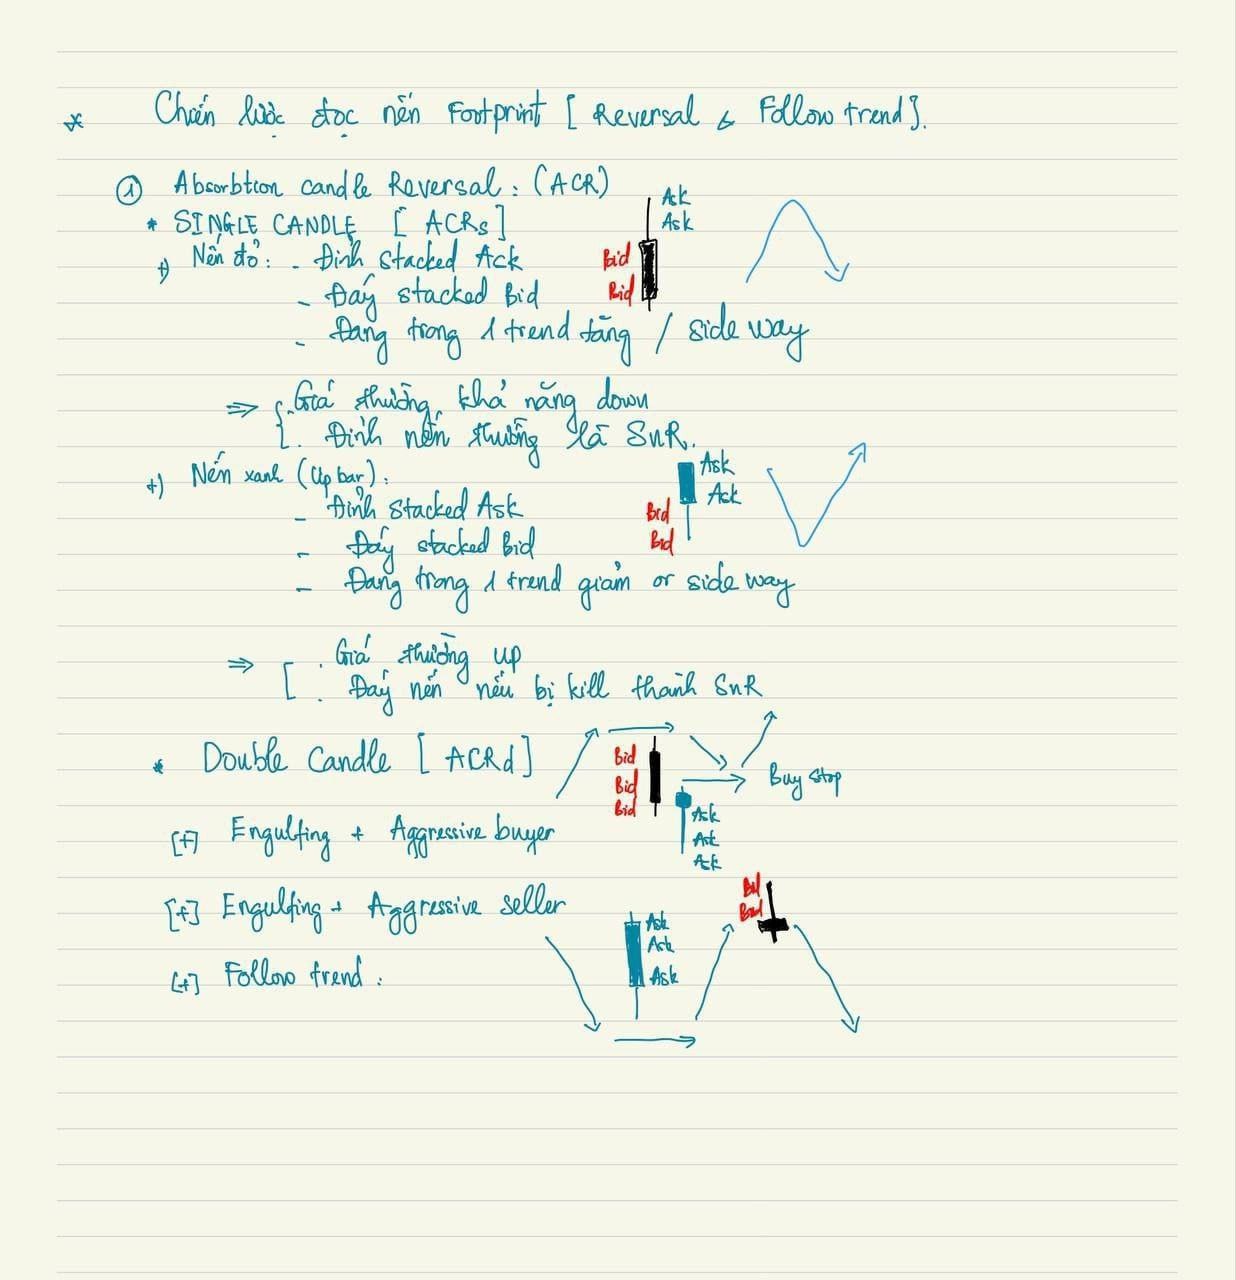 * Chiến lược đọc nến Footprint [ Reversal & Follow trend ].
① Absorbtion candle Reversal : (ACR)
* SINGLE CANDLE [ ACRs ]
Ask
Ask
+) Nến đỏ : - Đỉnh stacked Ask
Bid
- Đáy stacked Bid
Bid
- Đang trong 1 trend tăng / side way
⇒ { . Giá thường khả năng down
. Đỉnh nến thường là SnR.
+) Nến xanh (Up bar) :
Ask
Ask
- Đỉnh stacked Ask
Bid
- Đáy stacked Bid
Bid
- Đang trong 1 trend giảm or side way
⇒ [ . Giá thường up
. Đáy nến nếu bị kill thành SnR
* Double Candle [ ACRd ]
Bid
Bid
Bid
Buy stop
Ask
Ask
Ask
[+] Engulfing + Aggressive buyer
[+] Engulfing + Aggressive seller
Bid
Bid
Ask
Ask
Ask
[+] Follow trend :